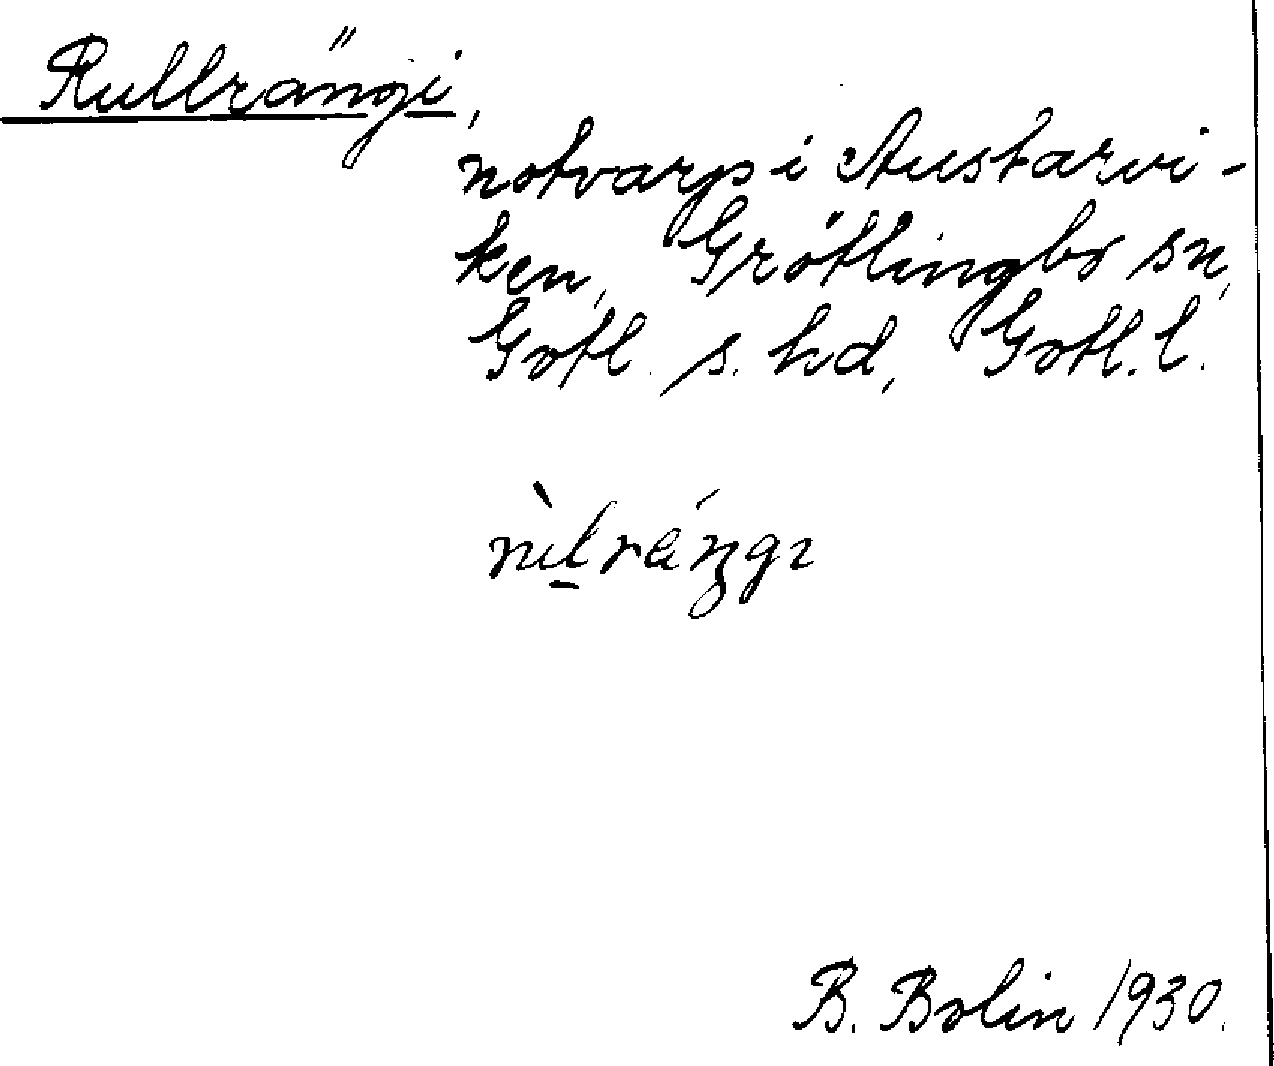 Rullrängi,
notvarp i Austarvi-
ken, Grötlingbo sn,
Gotl. s. hd, Gotl. l.
rùl̠rä́ŋgı
B. Bolin 1930.